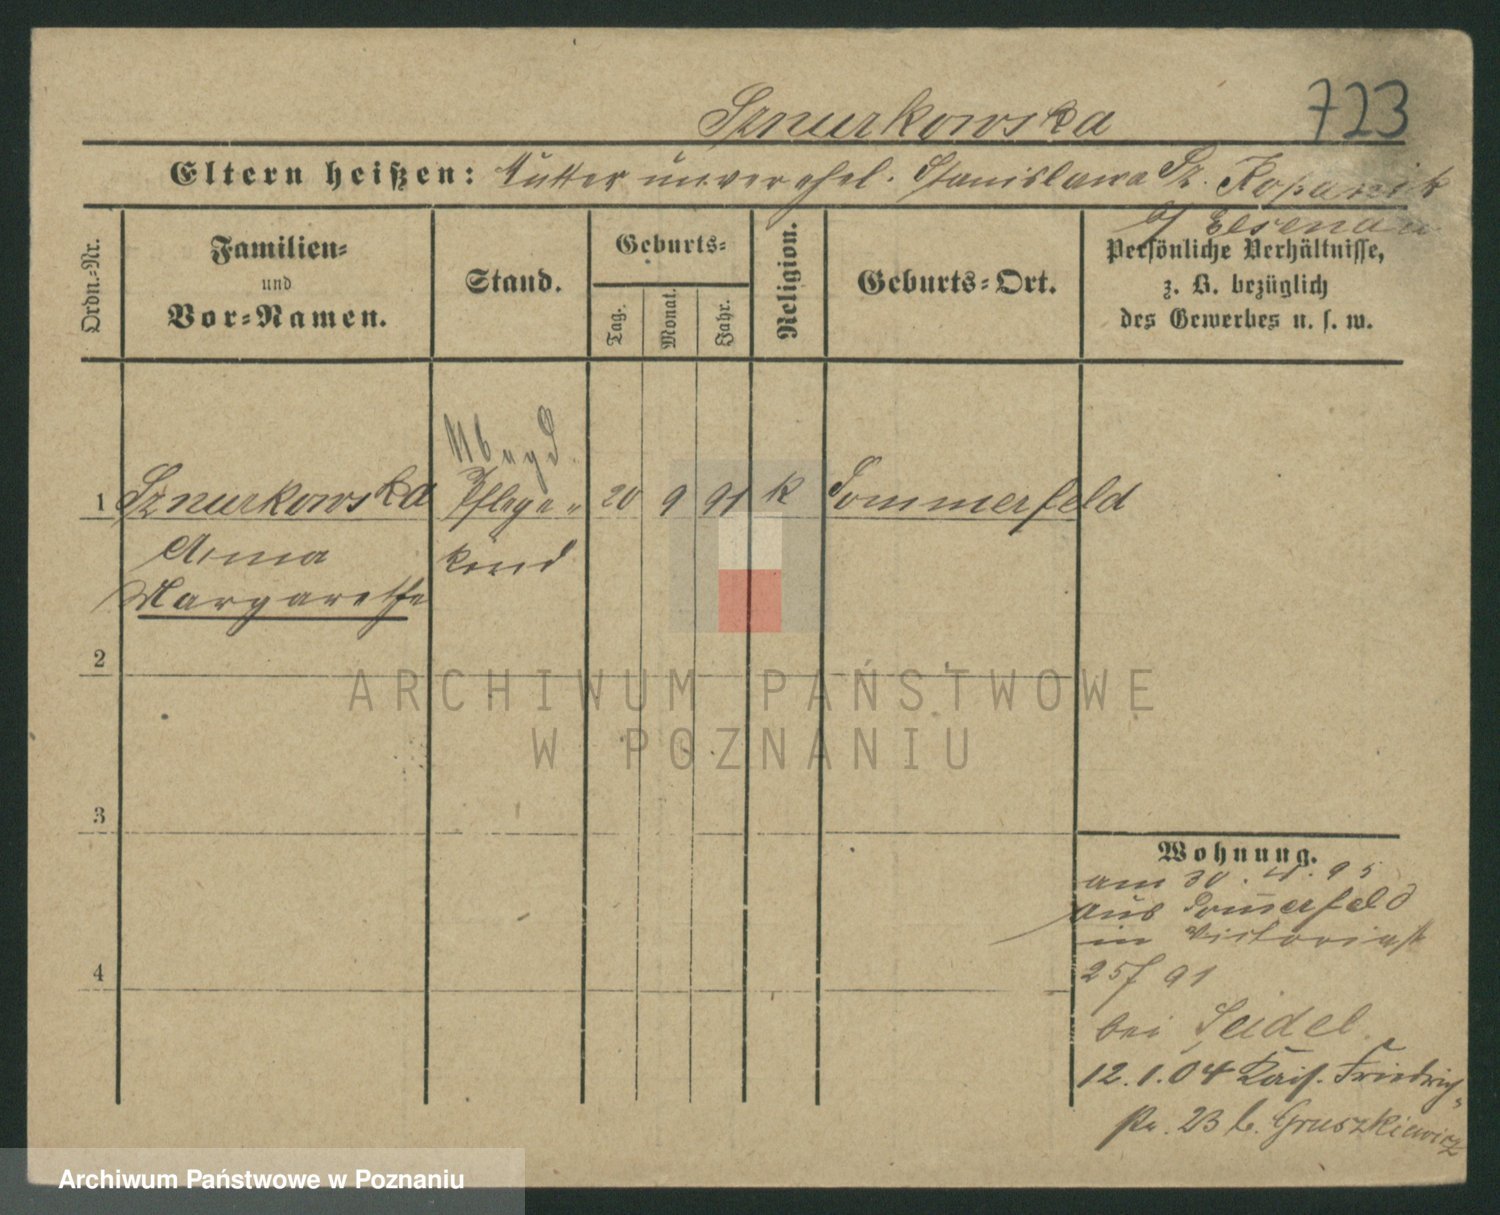 Sznurkowska 723
Eltern heißen: Mutter unverehel. Stanislawa Sz. Kopanik
b/ Elsenau
Ordn.=Nr.
Familien=
und
Vor=Namen.
Stand.
Geburts=
Tag.
Monat.
Jahr.
Religion.
Geburts=Ort.
Persönliche Verhältnisse,
z. B. bezüglich
des Gewerbes u. s. w.
1 Sznurkowska Pflege= 20 9 91 k Sommerfeld
Anna kind
Margarethe
2
3
4
Wohnung.
am 30. 4. 95
aus Somerfeld
in Victoriast
25 91
bei Seidel
12.1.04 Kais. Friedrich=
str. 23 b. Gruszkiewicz
ARCHIWUM PAŃSTWOWE
W POZNANIU
Archiwum Państwowe w Poznaniu